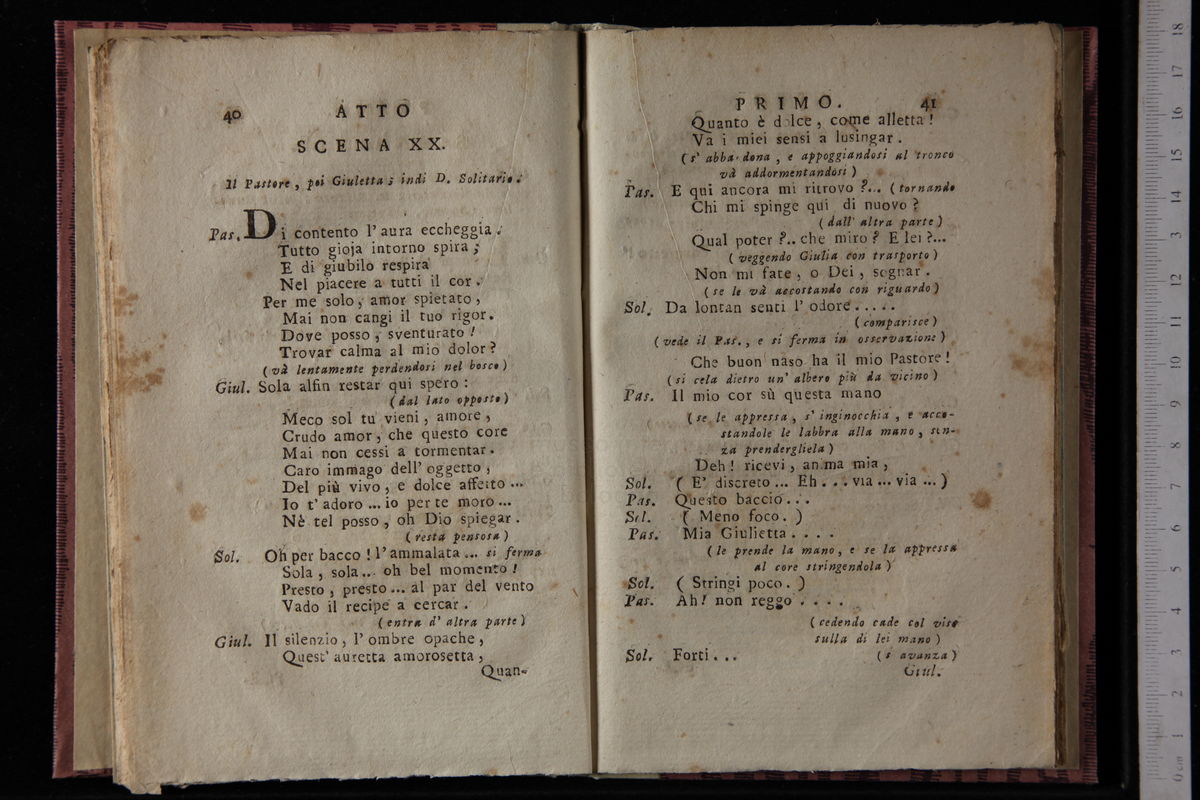 40 ATTO
SCENA XX.
Il Pastore, poi Giuletta; indi D. Solitario.
Pas. Di contento l'aura eccheggia.
Tutto gioja intorno spira;
E di giubilo respira
Nel piacere a tutti il cor.
Per me solo, amor spietato,
Mai non cangi il tuo rigor.
Dove posso, sventurato!
Trovar calma al mio dolor?
(và lentamente perdendosi nel bosco)
Giul. Sola alfin restar qui spero:
(dal lato opposto)
Meco sol tu vieni, amore,
Crudo amor, che questo core
Mai non cessi a tormentar.
Caro immago dell'oggetto,
Del più vivo, e dolce affetto...
Io t'adoro... io per te moro...
Nè tel posso, oh Dio spiegar.
(resta pensosa)
Sol. Oh per bacco! l'ammalata... si ferma
Sola, sola... oh bel momento!
Presto, presto... al par del vento
Vado il recipe a cercar.
(entra d'altra parte)
Giul. Il silenzio, l'ombre opache,
Quest'auretta amorosetta,
Quan-
PRIMO. 41
Quanto è dolce, come alletta!
Va i miei sensi a lusingar.
(s'abbandona, e appoggiandosi al tronco
và addormentandosi)
Pas. E qui ancora mi ritrovo?... (tornando
Chi mi spinge qui di nuovo?
(dall'altra parte)
Qual poter?.. che miro? E lei?...
(veggendo Giulia con trasporto)
Non mi fate, o Dei, sognar.
(se le và accostando con riguardo)
Sol. Da lontan senti l'odore.....
(comparisce)
(vede il Pas., e si ferma in osservazione)
Che buon naso ha il mio Pastore!
(si cela dietro un'albero più da vicino)
Pas. Il mio cor sù questa mano
(se le appressa, s'inginocchia, e acco-
standole le labbra alla mano, sen-
za prendergliela)
Deh! ricevi, anima mia,
Sol. (E' discreto... Eh... via... via...)
Pas. Questo baccio...
Sol. (Meno foco.)
Pas. Mia Giulietta....
(le prende la mano, e se la appressa
al core stringendola)
Sol. (Stringi poco.)
Pas. Ah! non reggo....
(cedendo cade col viso
sulla di lei mano)
Sol. Forti... (s avanza)
Giul.
18
17
16
15
14
13
12
11
10
9
8
7
6
5
4
3
2
1
0 cm